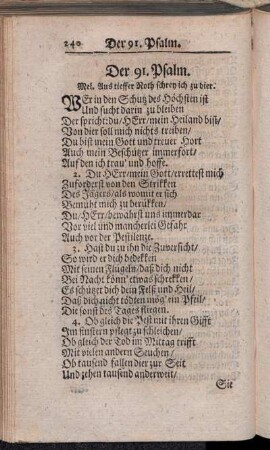 240 Der 91. Psalm.
Der 91. Psalm.
Mel. Aus tieffer Noth schrey ich zu dier.
WEr in den Schutz des Höchsten ist
Und sucht darin zu bleiben
Der spricht: du/ HErr/ mein Heiland bist/
Von dier soll mich nichts treiben/
Du bist mein Gott und treuer Hort
Auch mein Beschützer immerfort/
Auf den ich trau' und hoffe.
2. Du HErr/ mein Gott/ errettest mich
Zuforderst von den Strikken
Des Jägers/ als womit er sich
Bemüht mich zu berükken/
Du/ HErr/ bewahrst uns immerdar
Vor viel und mancherlei Gefahr
Auch vor der Pestilenze.
3. Hast du zu ihn die Zuversicht/
So wird er dich bedekken
Mit seinen Flügeln/ daß dich nicht
Bei Nacht könn' etwas schrekken/
Es schützet dich dein Fels und Heil/
Daß dich nicht tödten mög' ein Pfeil/
Die sonst des Tages fliegen.
4. Ob gleich die Pest mit ihren Gifft
Im finstern pflegt zu schleichen/
Ob gleich der Tod im Mittag trifft
Mit vielen andern Seuchen/
Ob tausend fallen dier zur Seit
Und zehen tausend anderweit/
Sie